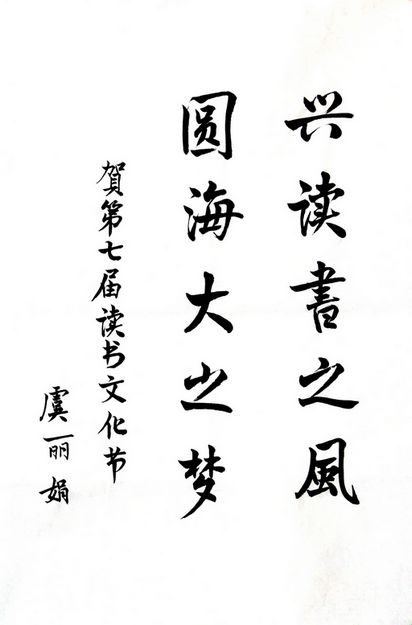 兴读書之風
圆海大之梦
賀第七届读书文化节
虞丽娟